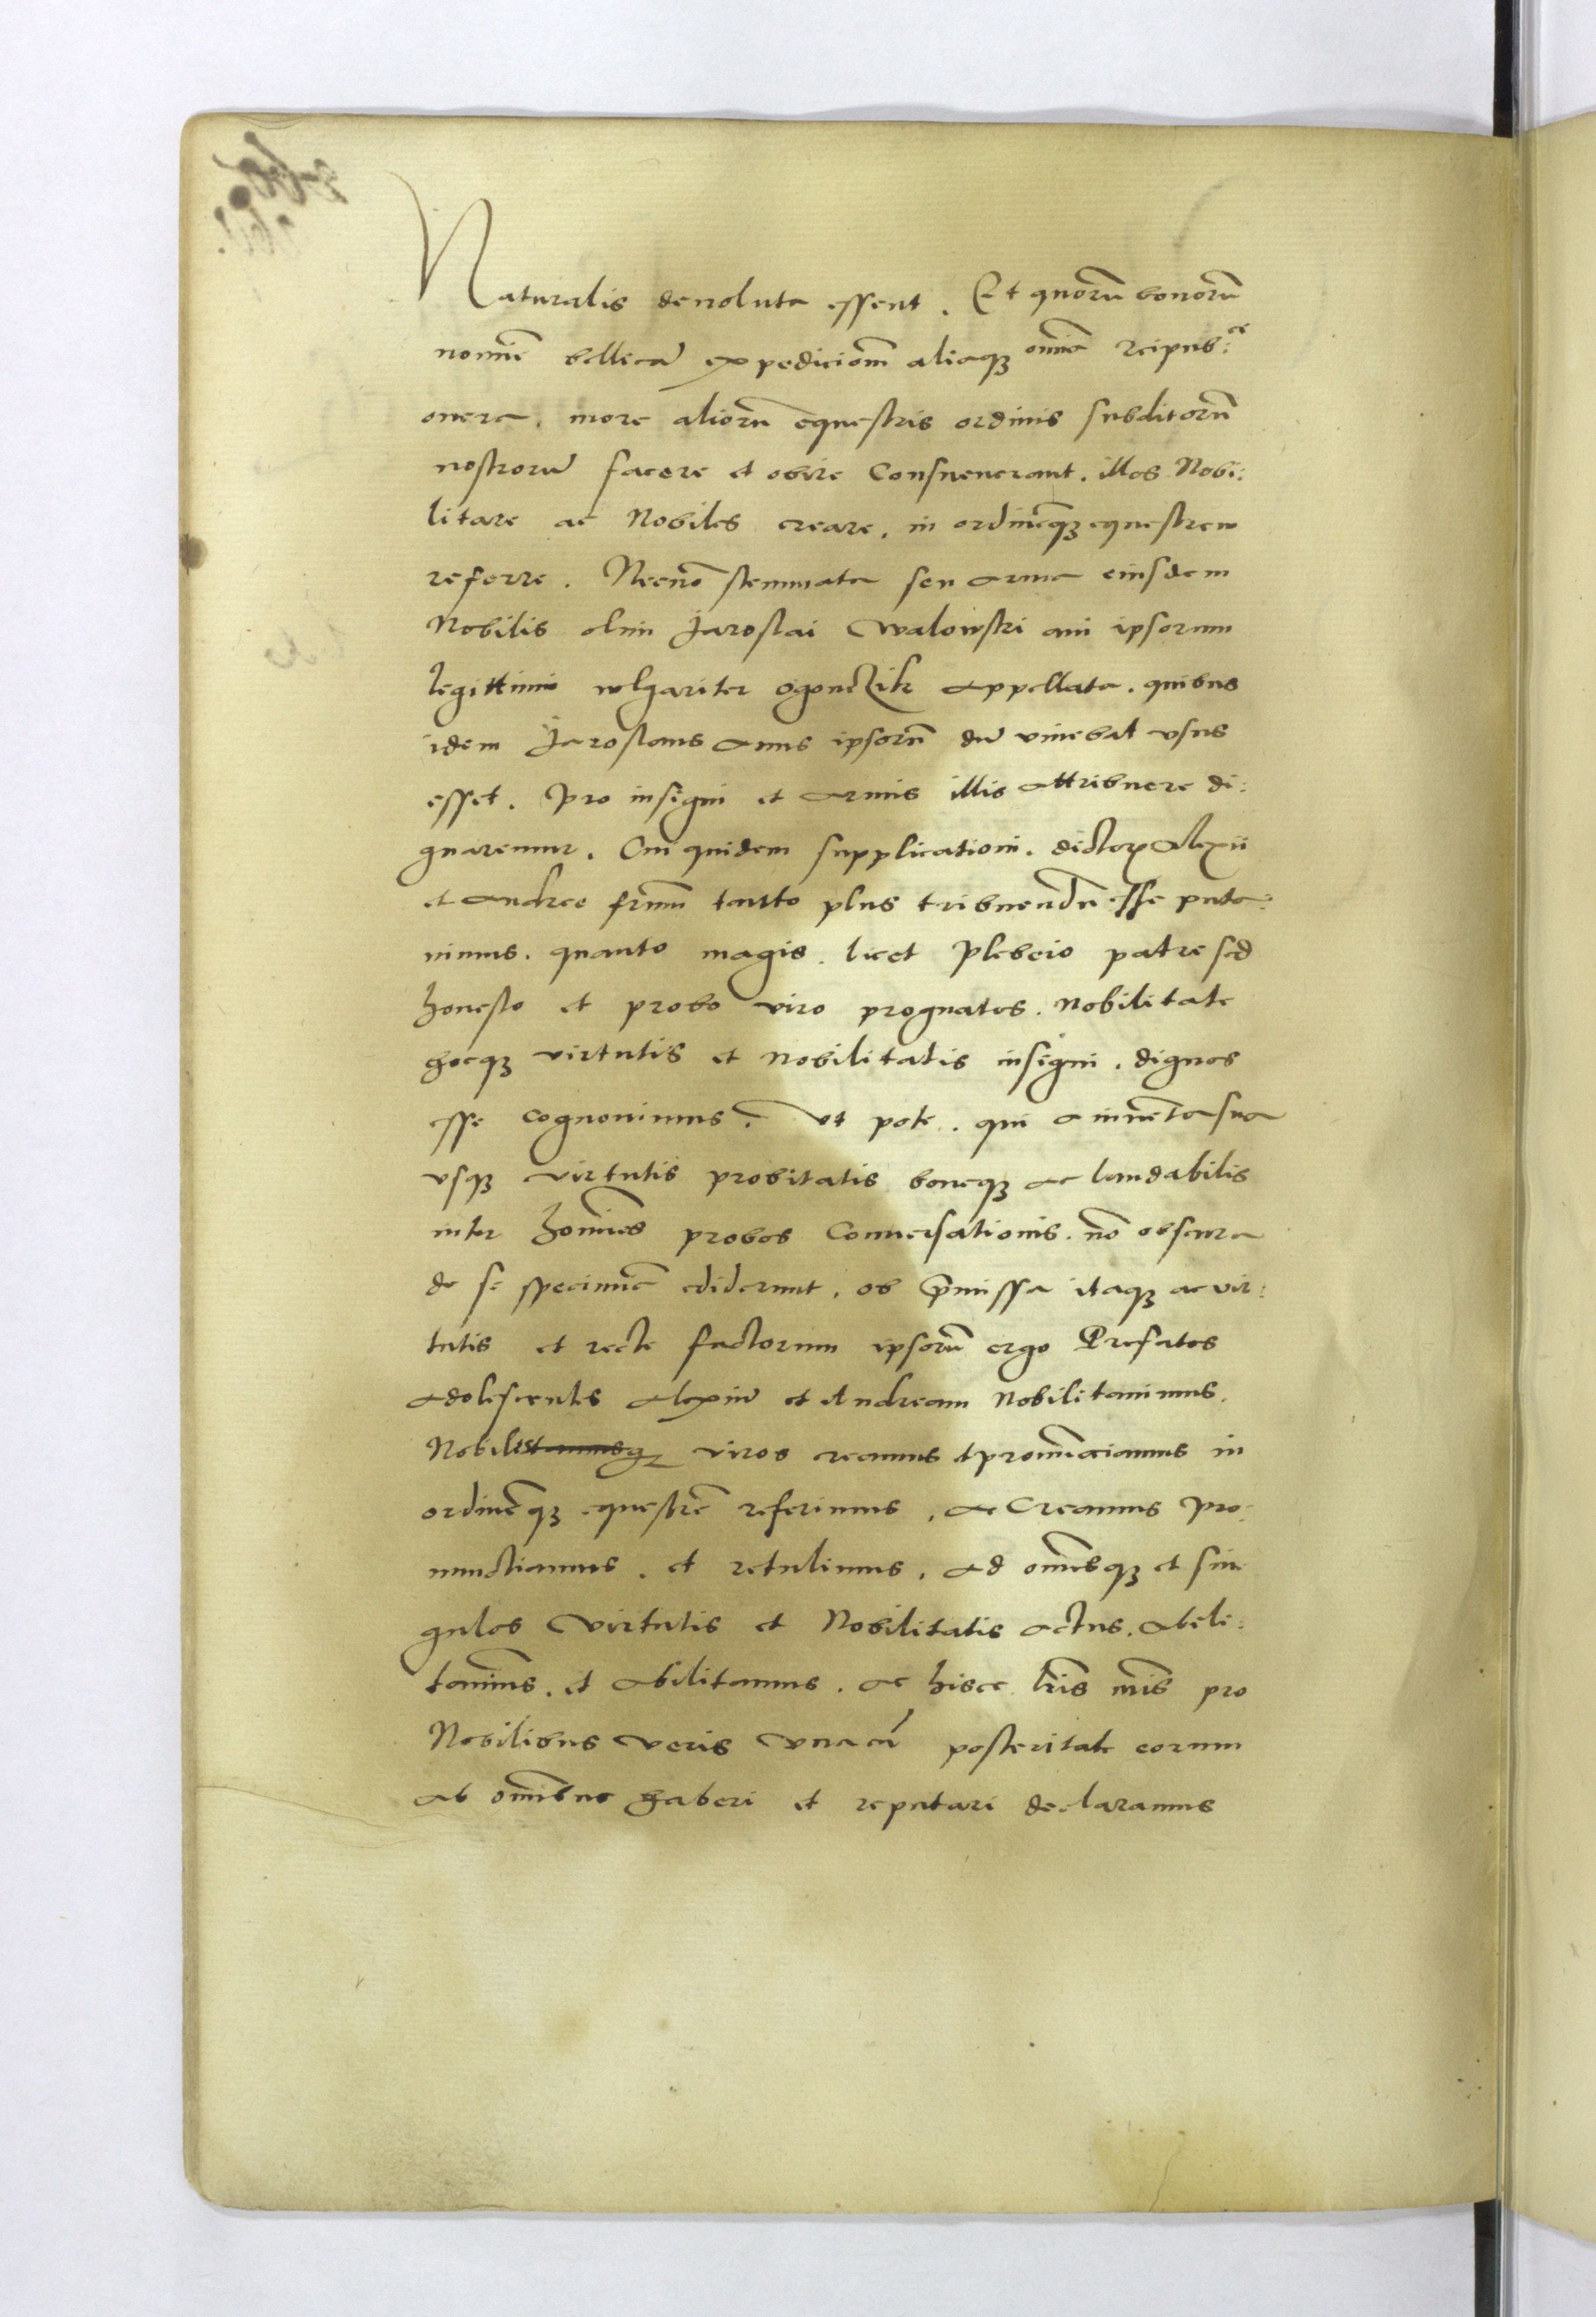 Naturalis deuoluta essent. Et quorū bonorū
nomīe bellicā expediciōm aliaqꝫ om̄ia Reipub:ce
onera, more aliorū equestris ordinis subditorū
nostrorū facere et obire Consueuerant. illos Nobi:
litare ac Nobiles creare, in ordinēqꝫ equestrem
referre. Necnō stemmata seu arma eiusdem
Nobilis olim Jaroslai Walowski aui ipsorum
legittimi wlgariter ogonczik appellata. quibus
idem Jaroslaus auus ipsorū dū viuebat vsus
esset. Pro insigni et armis illis attribuere di:
gnaremur. Cui quidem supplicationi. dictorꝝ Alexii
et Andree frūm tanto plus tribuendū esse puta:
uimus. quanto magis. licet Plebeio patre sed
honesto et probo viro prognatos. Nobilitate
hocqꝫ virtutis et Nobilitatis insigni. dignos
esse cognouimus. vt pote. qui a iuuēta sua
vsqꝫ virtutis probitatis boneqꝫ ac laudabilis
inter homīes probos Conuersationis. nō obscura
de se specimīa ediderunt. ob p̄missa itaqꝫ ac vir:
tutis et recte factorum ipsorū ergo Prefatos
adolescentes Alexiū et Andream Nobilitauimus.
Nobiles viros creamus et pronūciamus in
ordinēqꝫ equestrē referimus, ac Creamus Pro:
nunctiamus. et retulimus. ad om̄esqꝫ et sin
gulos virtutis et Nobilitatis actus. Abili:
tauim̄s. et abilitamus. ac hisce lr̄is nr̄is pro
Nobilibus veris vnacū posteritate eorum
ab om̄ibus haberi et reputari declaramus